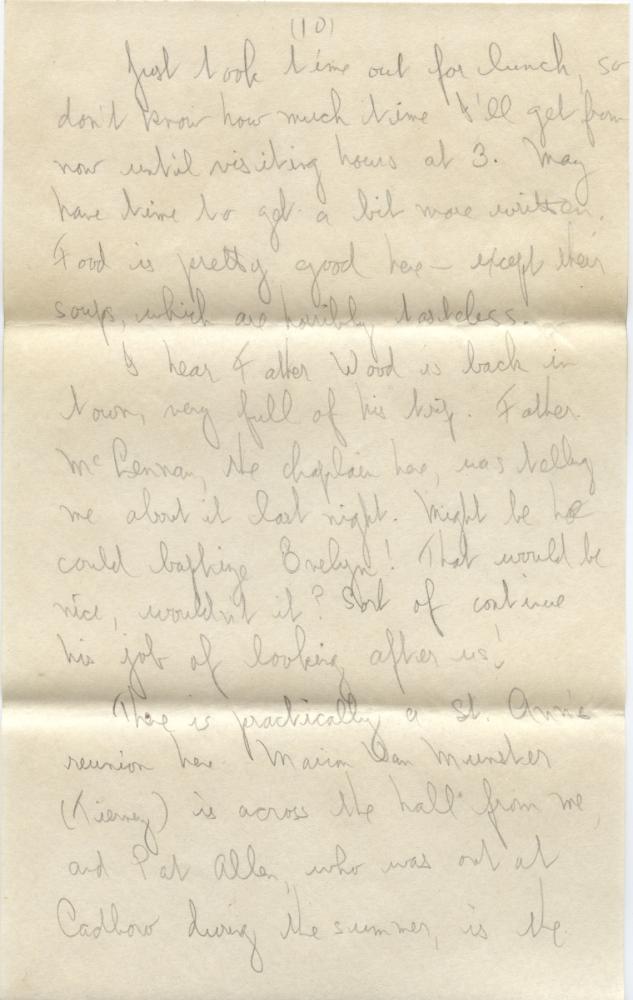 (10)
Just took time out for lunch, so
don't know how much time I'll get from
now until visiting hours at 3. May
have time to get a bit more written.
Food is pretty good here – except their
soups, which are horribly tasteless.
I hear Father Wood is back in
town, very full of his trip. Father
McLennan, the chaplain here, was telling
me about it last night. Might be he
could baptize Evelyn! That would be
nice, wouldn't it? Sort of continue
his job of looking after us!
There is practically a St. Ann's
reunion here. Marion Van Munster
(Tierney) is across the hall from me,
and Pat Allen, who was out at
during the summer, is the